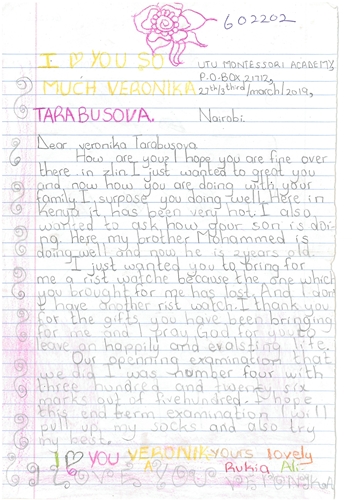 602202
I YOU SO
MUCH VERONIKA
TARABUSOVA.
UTU MONTESSORI ACADEMY,
P.O-BOX 21712,
27th/3third/march/2019,
Nairobi.
Dear veronika Tarabusova
How are you? I hope you are fine over
there in zlin. I just wanted to great you
and now how you are doing with your
family I surpose you doing well. Here in
Kenya it has been very hot. I also
wanted to ask how your son is doi-
ng. Here my brother Mohammed is
doing well and now he is 2 years old.
I just wanted you to bring for
me a rist watche because the one which
you brought for me has lost. And I don't
have another rist watch. I thank you
for the gifts you have been bringing
for me and I pray God for you to
leave an happily and evalsting life.
Our openning examination that
we did I was number four with
three hundred and twenty six
marks out of fivehundred. I hope
this end term examination I will
pull up my socks and also try
my best.
I YOU VERONIKA
yours lovely
Rukia Ali